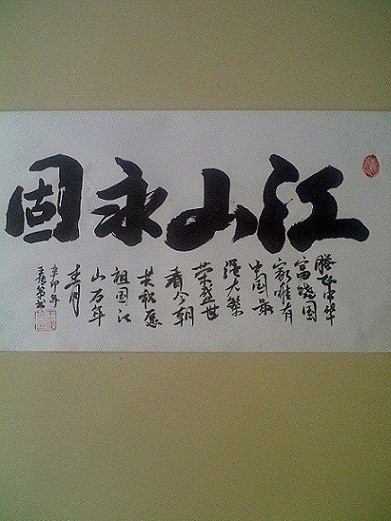 江山永固
腾飞中华
富饶国
家唯有
中国最
强大繁
荣盛世
看今朝
共祝愿
祖国江
山万年
辛卯年